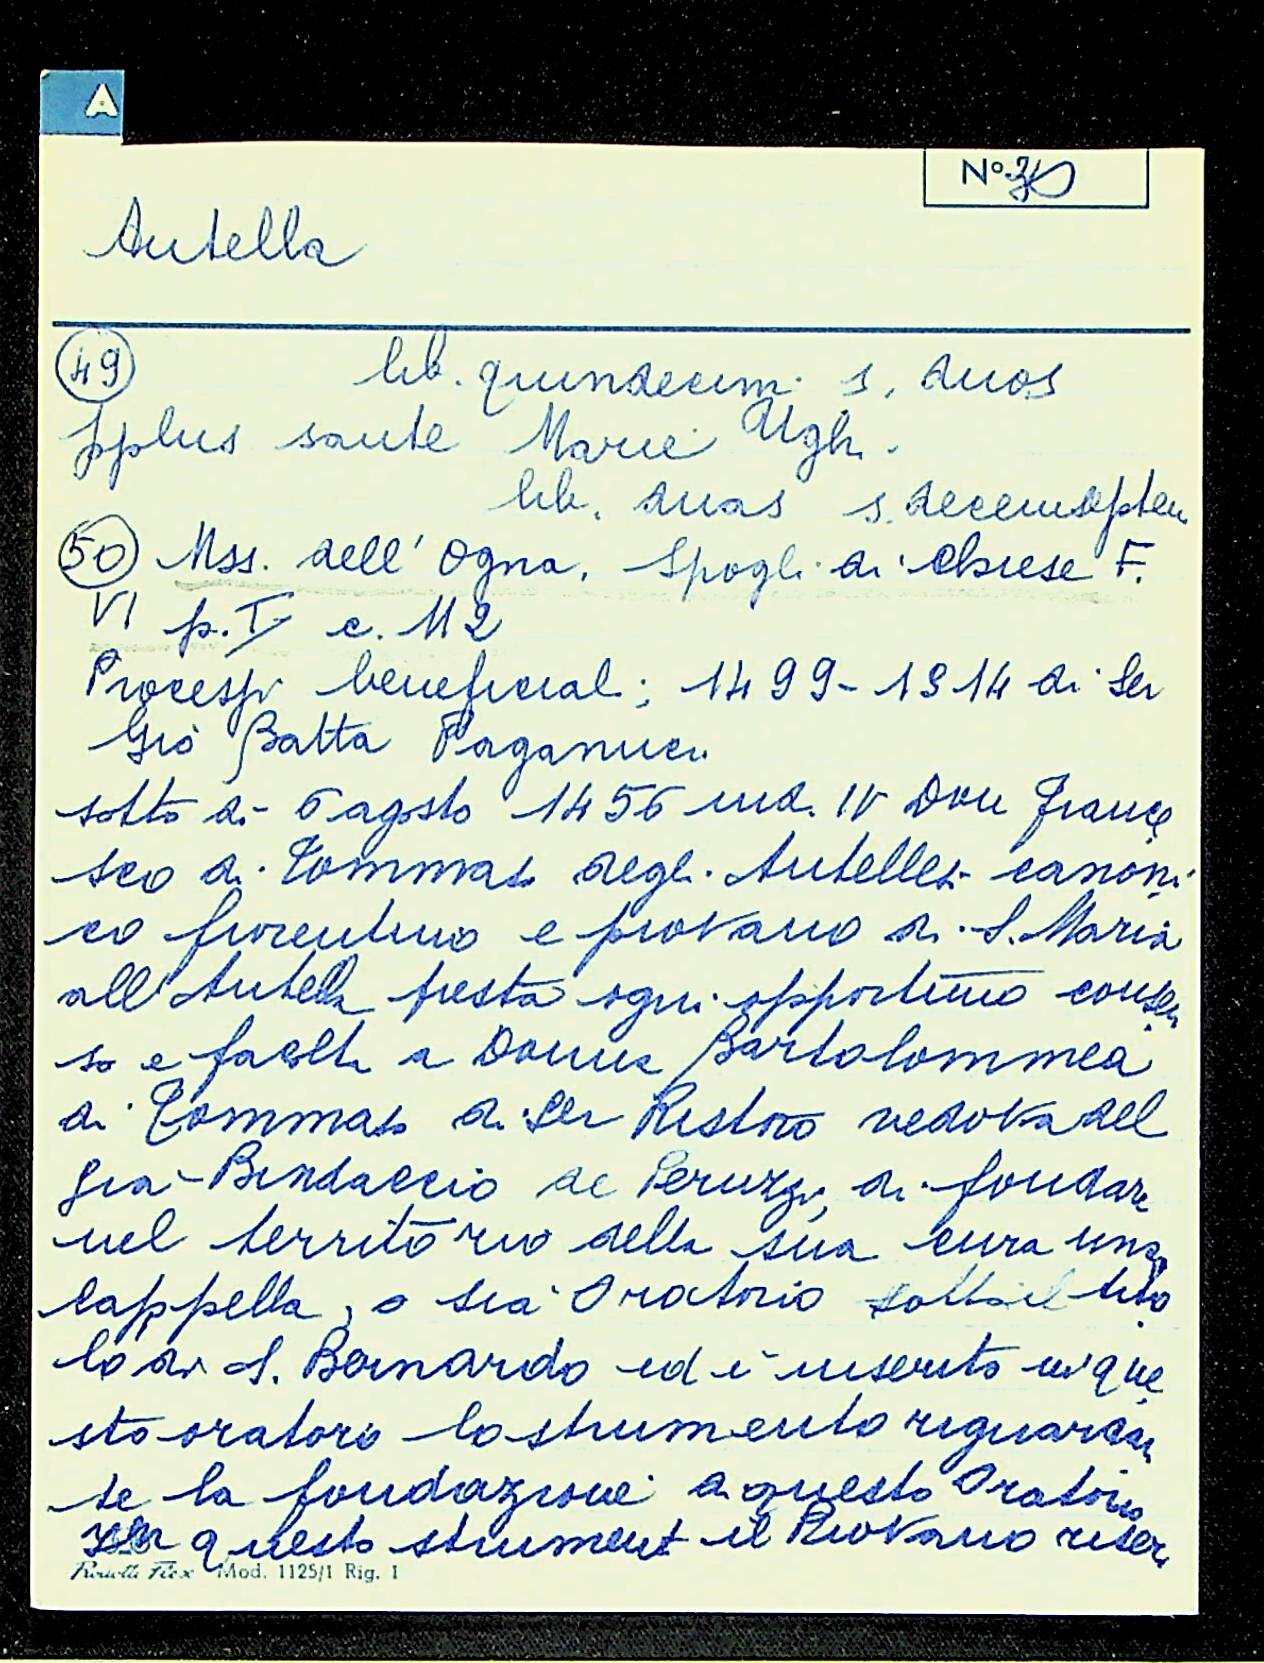 A
N° 30
Antella
49 lib. quindecim s. duos
pplus sante Marie Ughi.
lib. duas s. decemsepten
50 Mss. dell' Ogna. Spogli di Chiese F.
VI p. I c. 112
Processi beneficiali; 1499-1514 di Ser
Gio Batta Paganucci
sotto di 6 agosto 1456 ind. IV Don France
sco di Tommaso degli Antellesi canoni
co fiorentino e piovano di S. Maria
all'Antella presta ogni opportuno consen
so e facoltà a Donna Bartolommea
di Tommaso di Ser Ristoro vedova del
già Bindaccio de Peruzzi, di fondare
nel territorio della sua cura una
Cappella, o sia Oratorio sotto il tito
lo di S. Bernardo ed è inserito in que
sto oratorio lo strumento riguardan
te la fondazione di questo Oratorio
questo strumento il Piovano riser
Mod. 1125/1 Rig. 1